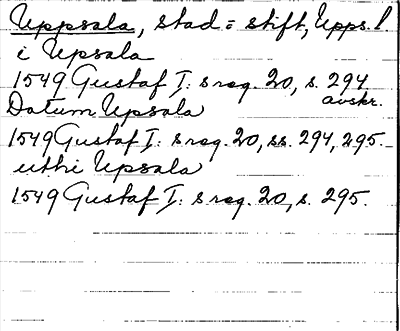 Uppsala, stad = stift, Upps. l.
i Upsala
1549 Gustaf I: s reg. 20, s. 294
avskr.
Datum Upsala
1549 Gustaf I: s reg. 20, ss. 294, 295.
uthi Upsala
1549 Gustaf I: s reg. 20, s. 295.